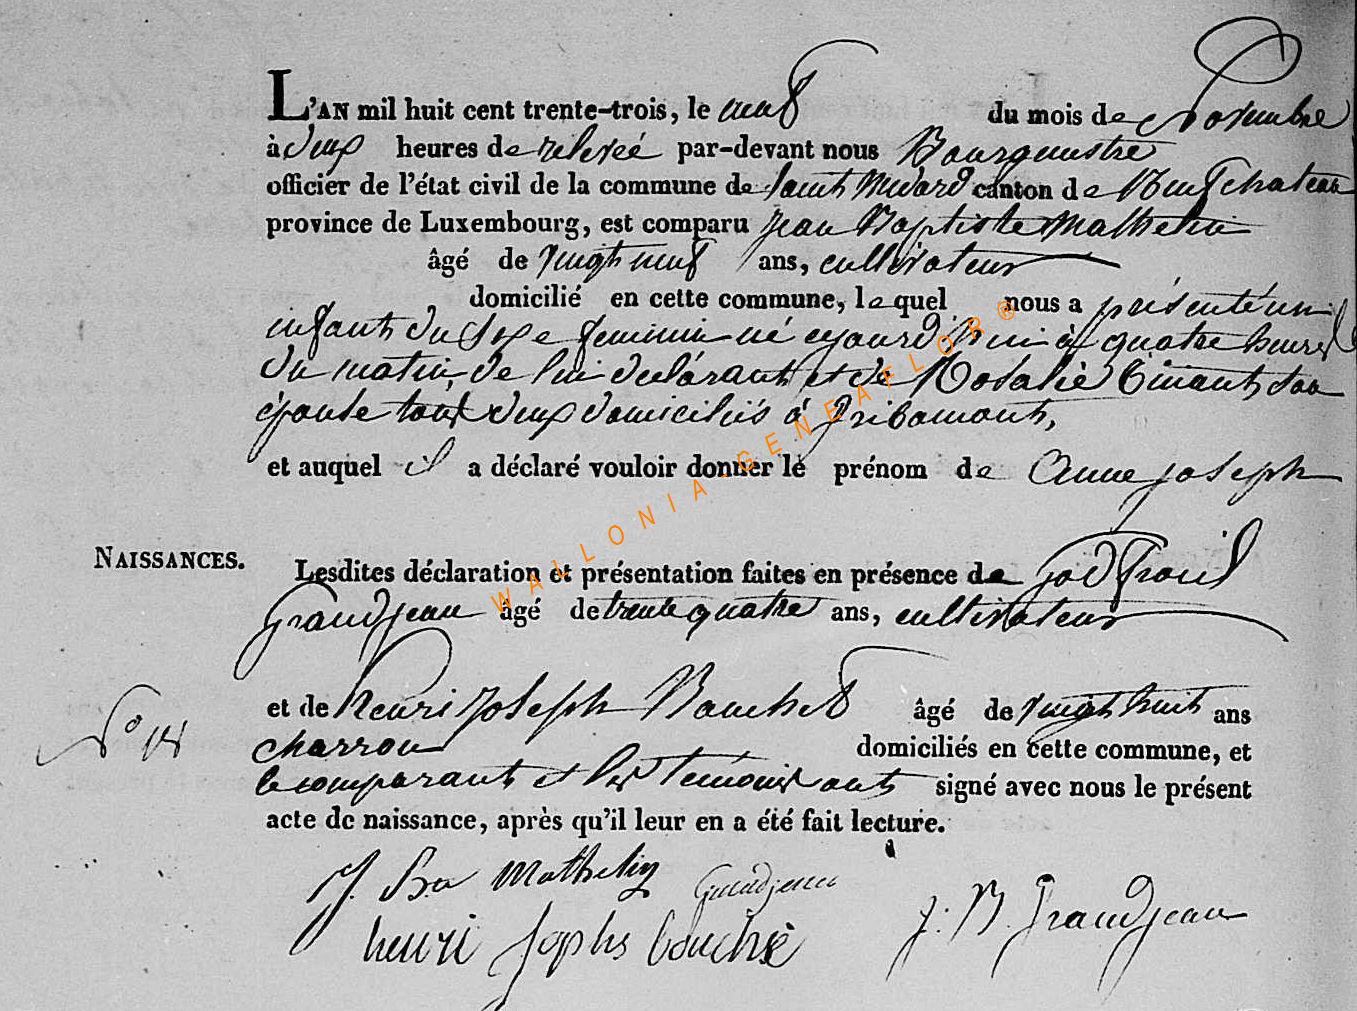 L'AN mil huit cent trente-trois, le neuf du mois de Novembre
à deux heures de relevée par-devant nous Bourgmestre
officier de l'état civil de la commune de Saint Médard canton de Neufchateau
province de Luxembourg, est comparu Jean Baptiste Mathelin
âgé de vingt neuf ans, cultivateur
domicilié en cette commune, lequel nous a présenté un
enfant du sexe feminin né cejourd'hui à quatre heures
du matin, de lui déclarant et de Rosalie Tinant son
épouse tous deux domiciliés à Gribomont,
et auquel il a déclaré vouloir donner le prénom de Anne Joseph
NAISSANCES.
Lesdites déclaration et présentation faites en présence de Godfroid
Grandjean âgé de trente quatre ans, cultivateur
et de henri Joseph Bouché âgé de vingt huit ans
N°
charron domiciliés en cette commune, et
le comparant et les temoins ont signé avec nous le présent
acte de naissance, après qu'il leur en a été fait lecture.
J. Bte Mathelin Grandjean
J. B. Grandjean
henri Jophs bouché
WALLONIA-GENEAFLOR®